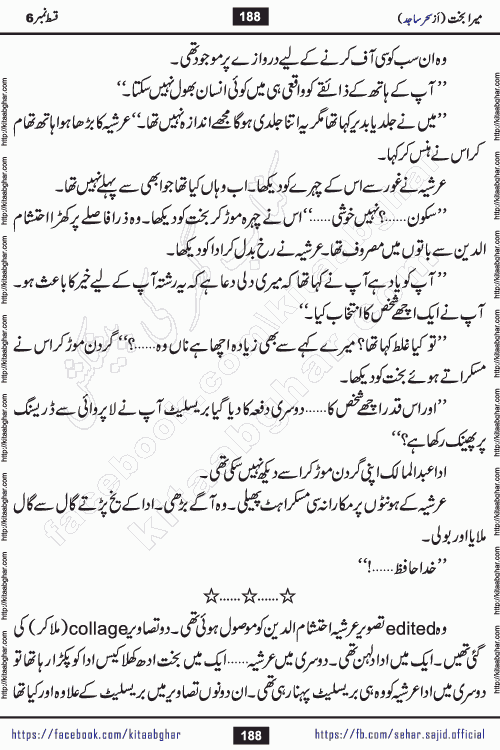 میرا بخت (از سحر ساجد)
188
قسط نمبر 6
وہ ان سب کو سی آف کرنے کے لیے دروازے پر موجود تھی۔
’’آپ کے ہاتھ کے ذائقے کو واقعی ہی میں کوئی انسان بھول نہیں سکتا۔‘‘
’’میں نے جلد یا بدیر کہا تھا مگر یہ اتنا جلدی ہو گا مجھے اندازہ نہیں تھا۔‘‘ عرشیہ کا بڑھا ہوا ہاتھ تھام
کر اس نے ہنس کر کہا۔
عرشیہ نے غور سے اس کے چہرے کو دیکھا۔ اب وہاں کیا تھا جو ابھی سے پہلے نہیں تھا۔
’’سکون......؟ نہیں خوشی......‘‘ اس نے چہرہ موڑ کر بخت کو دیکھا۔ وہ ذرا فاصلے پر کھڑا احتشام
الدین سے باتوں میں مصروف تھا۔ عرشیہ نے رخ بدل کر ادا کو دیکھا۔
’’آپ کو یاد ہے آپ نے کہا تھا کہ میری دلی دعا ہے کہ یہ رشتہ آپ کے لیے خیر کا باعث ہو۔
آپ نے ایک اچھے شخص کا انتخاب کیا۔‘‘
’’تو کیا غلط کہا تھا؟ میرے کہے سے بھی زیادہ اچھا ہے ناں وہ......؟‘‘ گردن موڑ کر اس نے
مسکراتے ہوئے بخت کو دیکھا۔
’’اور اس قدر اچھے شخص کا...... دوسری دفعہ کا دیا گیا بریسلیٹ آپ نے لاپروائی سے ڈریسنگ
پر پھینک رکھا ہے؟‘‘
ادا عبدالمالک اپنی گردن موڑ کر اسے دیکھ نہیں سکی تھی۔
عرشیہ کے ہونٹوں پر مکارانہ سی مسکراہٹ پھیلی۔ وہ آگے بڑھی۔ ادا کے یخ پڑتے گال سے گال
ملایا اور بولی۔
’’خدا حافظ......!‘‘
☆......☆......☆
وہ edited تصویر عرشیہ احتشام الدین کو موصول ہوئی تھی۔ دو تصاویر collage (ملا کر) کی
گئی تھیں۔ ایک میں ادا دلہن تھی۔ دوسری میں عرشیہ...... ایک میں بخت ادھ کھلا کیس ادا کو پکڑا رہا تھا تو
دوسری میں ادا عرشیہ کو وہ ہی بریسلیٹ پہنا رہی تھی۔ ان دونوں تصاویر میں بریسلیٹ کے علاوہ اور کیا تھا
https://facebook.com/kitaabghar
188
https://fb.com/sehar.sajid.official
http://kitaabghar.com
facebook.com/kitaabghar
kitaabghar.com